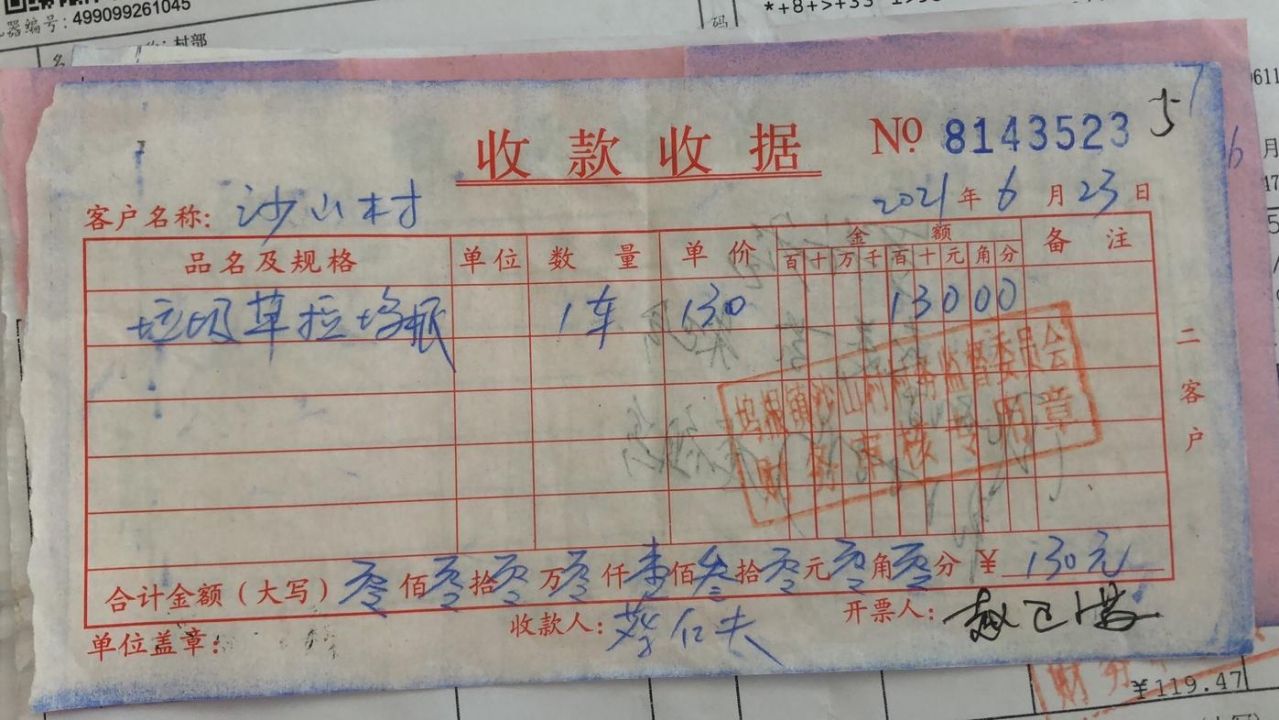 器编号: 499099261045
码
*+8+>+33
村部
收款收据 № 8143523
客户名称: 沙山村 2021年6月23日
品名及规格 单位 数量 单价 金额 备注
百十万千百十元角分
垃圾草拉 1车 130 13000
二客户
沙山村村务监督委员会
财务审核专用章
合计金额(大写) 零佰零拾零万零仟壹佰叁拾零元零角零分 ¥130元
单位盖章: 收款人: 蔡仁夫 开票人: 赵
财务
¥119.47